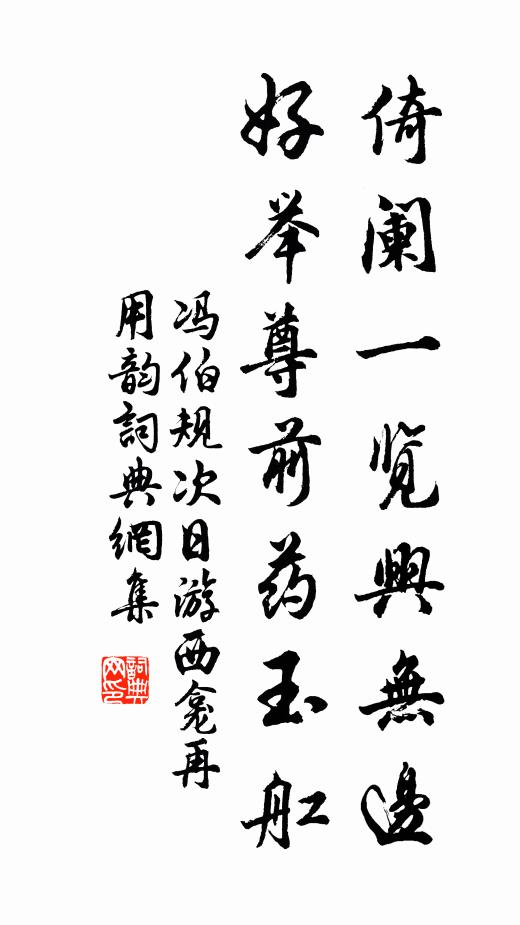 倚阑一览興無邊
好举尊前药玉舡
冯伯规次日游西龛再
用韵詞典網集
詞典
网印